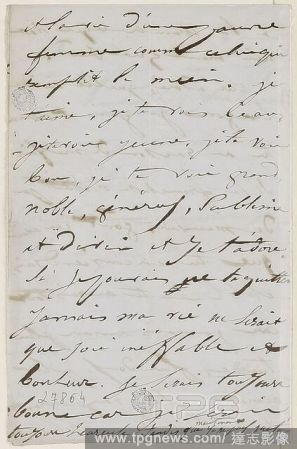 et la vie d'une pauvre
femme comme celle qui
remplit le mien. Je
t'aime, je te vois beau,
je te vois jeune, je te vois
bon, je te vois grand
noble, généreux, sublime
et divin et je t'adore
Si je pouvais ne te quitter
jamais ma vie ne serait
que joie ineffable et
bonheur. Je serais toujours
bonne car je serais
toujours heureuse tandis que
27864
TPG
www.tpgnews.com / 達志影像